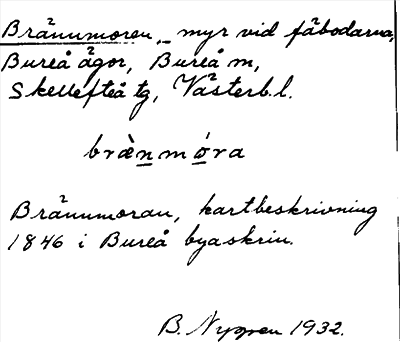 Brännmoren, myr vid fäbodarna,
Bureå ägor, Bureå m,
Skellefteå tg, Västerb.l.
bræ̀nmóra
Brännmoran, kartbeskrivning
1846 i Bureå byaskrin.
B. Nygren 1932.